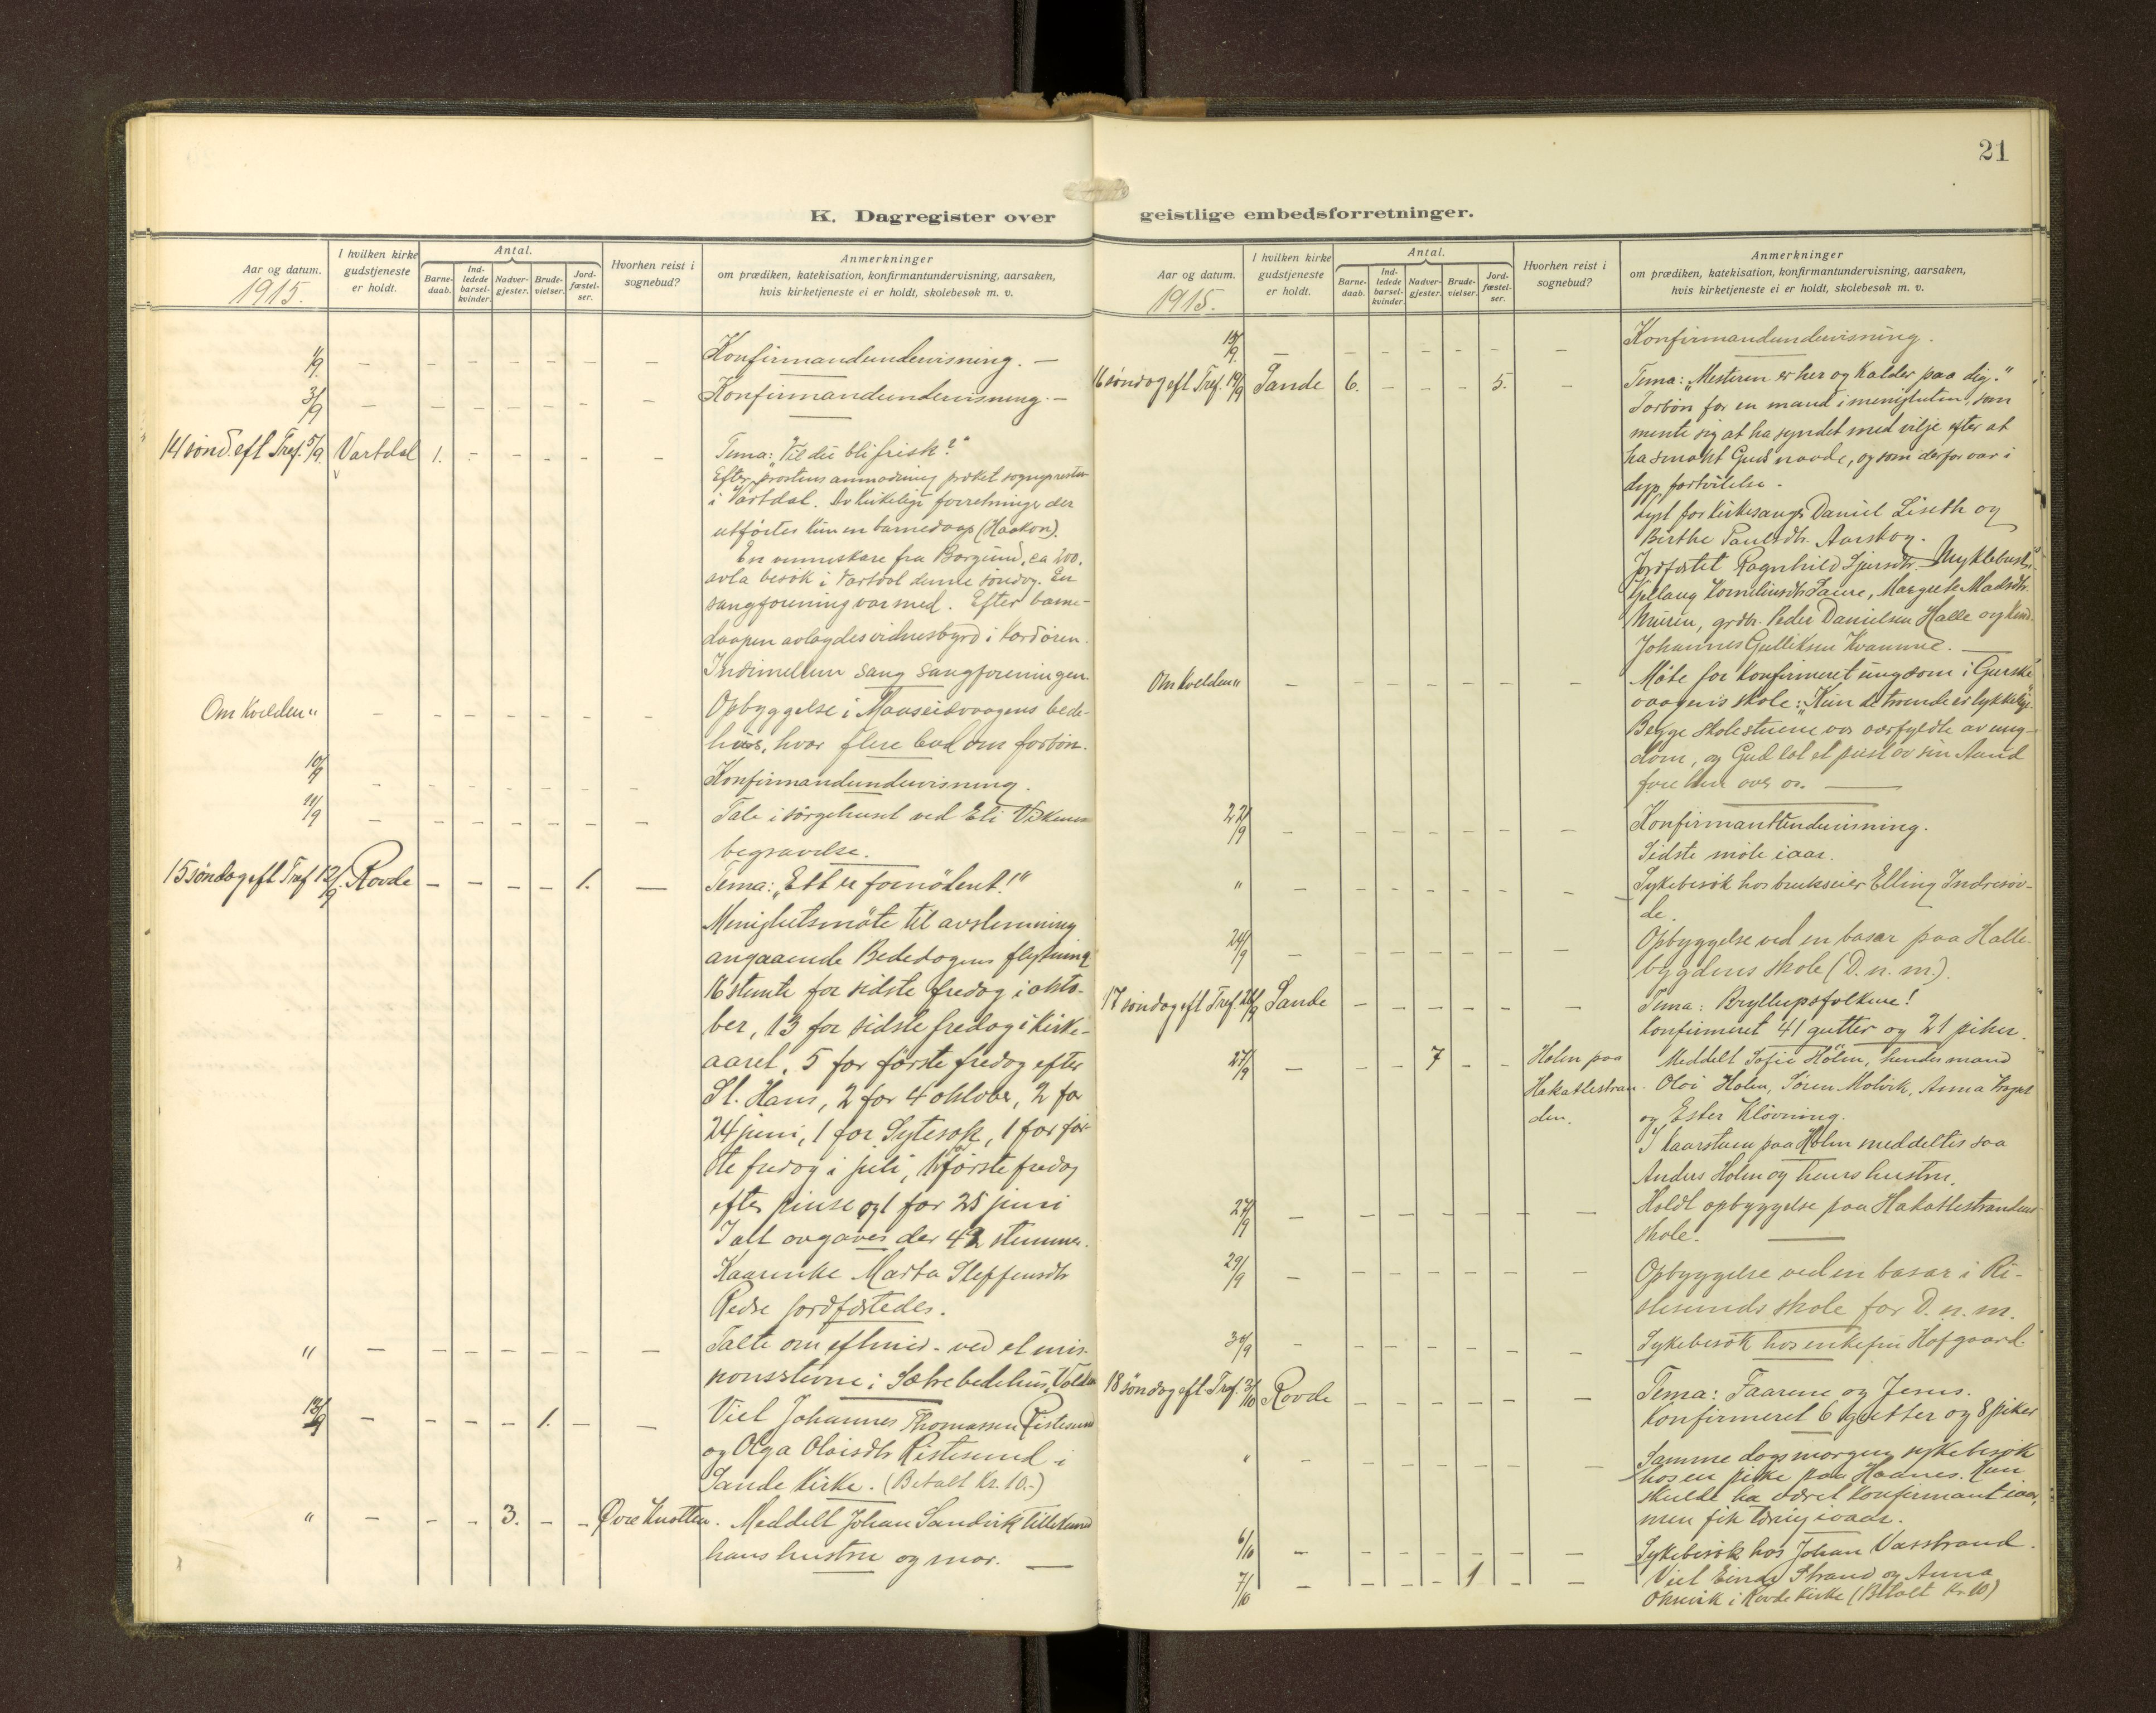 21
K. Dagregister over
Aar og datum.
1915.
I hvilken kirke
gudstjeneste
er holdt.
Antal.
Barne-
daab.
Ind-
ledede
barsel-
kvinder.
Nadver-
gjester.
Brude-
vielser.
Jord-
fæstel-
ser.
Hvorhen reist i
sognebud?
Anmerkninger
om prædiken, katekisation, konfirmantundervisning, aarsaken,
hvis kirketjeneste ei er holdt, skolebesøk m. v.
1/9 — — — — — — — Konfirmandundervisning. —
3/9 — — — — — — — Konfirmandundervisning. —
14 sønd. eft Tref. 5/9. Vartdal 1. — — — — — Tema: "Vil du bli frisk?"
Efter prostens anmodning præket sognepresten
i Vartdal. Av kirkelige forretninger der
utførtes kun en barnedaap (Haakon).
En venneskare fra Borgund, ca 200,
avla besøk i Vartdal denne søndag. En
sangforening var med. Efter barne-
daapen avlagdes vidnesbyrd i kordøren.
Indimellem sang sangforeningen.
Om kvelden " — — — — — — — Opbyggelse i Mauseidvaagens bede-
hus, hvor flere bad om forbøn.
10/9 — — — — — — — Konfirmandundervisning.
11/9 — — — — — — — Tale i sørgehuset ved Eli
begravelse.
15 søndag eft Tref 12/9. Rovde — — — — 1. — Tema: "Ett er fornødent!"
Menighetsmøte til avstemning
angaaende Bededagens flytning
16 stemte for sidste fredag i okto-
ber, 13 for sidste fredag i kirke-
aaret, 5 for første fredag efter
St. Hans, 2 for 4 oktober, 2 for
24 juni, 1 for Sytesok, 1 for før-
ste fredag i juli, 1 for første fredag
efter pinse og 1 for 25 juni
I alt avgaves der 42 stemmer.
Kaarenke Marta Steffensdtr
Redse jordfæstedes.
" — — — — — — — Talte om eftmid. ved et mis-
nonsstevne i Sætre bedehus, Volden
13/9 — — — — 1. — — Viet Johannes Thomassen Ristesund
og Olga Oloisdtr Ristesund i
Sande kirke. (Betalt kr. 10.-)
" — — — 3. — — Øvre Knotten. Meddelt Johan Sandvik
hans hustru og mor. —
geistlige embedsforretninger.
Aar og datum.
1915.
I hvilken kirke
gudstjeneste
er holdt.
Antal.
Barne-
daab.
Ind-
ledede
barsel-
kvinder.
Nadver-
gjester.
Brude-
vielser.
Jord-
fæstel-
ser.
Hvorhen reist i
sognebud?
Anmerkninger
om prædiken, katekisation, konfirmantundervisning, aarsaken,
hvis kirketjeneste ei er holdt, skolebesøk m. v.
/9. — — — — — — — Konfirmandundervisning.
16 søndag eft Tref. 19/9 Sande 6. — — — 5. — Tema: "Mesteren er her og kalder paa dig."
Forbøn for en mand i menigheten, som
mente sig at ha syndet med vilje efter at
ha smakt Guds naade, og som derfor var i
dyp fortvilelse.
Lyst for kirkesanger Daniel Liseth og
Birthe Paulsdtr. Aarskog.
Jordfæstet Ragnhild Sjursdtr. Myklebust,
Gjellaug Korneliusdtr Saure, Margrete Madsdtr.
grdbr. Peder Danielsen Halle og
Johannes Gulliksen Kvamme. —
Om kvelden " — — — — — — — Møte for konfirmeret ungdom i Gurske-
vaagens skole: "Kun de troende er lykkelige."
Begge skolestuene var overfyldte av ung-
dom, og Gud lot et pust av sin Aand
fare hen over os. —
22/9 — — — — — — — Konfirmantundervisning.
Sidste møte i aar.
" — — — — — — — Sykebesøk hos brukseier Elling Indresøv-
de.
24/9 — — — — — — — Opbyggelse ved en basar paa Halle-
bygdens skole (D. n. m.).
17 søndag eft Tref. 26/9 Sande — — — — — — Tema: Bryllupsfolkene!
Konfirmeret 41 gutter og 21 piker.
27/9 — — — 7 — — Holm paa Meddelt Sofie Holm, hendes mand
Hakallestran- Oloi Holm, Søren Molvik, Anna
den. og Ester Kløvning.
I kaarstuen paa Holm meddeltes saa
Anders Holm og hans hustru.
27/9 — — — — — — — Holdt opbyggelse paa Hakallestrandens
skole. —
29/9 — — — — — — — Opbyggelse ved en basar i Ri-
stesunds skole for D. n. m.
30/9 — — — — — — — Sykebesøk hos enkefru Hofgaard.
18 søndag eft. Tref. 3/10 Rovde — — — — — — Tema: Faarene og Jesus.
Konfirmeret 6 gutter og 8 piker
" — — — — — — — Samme dags morgen sykebesøk
hos en pike paa Haanes. Hun
skulde ha været konfirmant i aar,
men fik tæring i vaar.
6/10 — — — — — — — Sykebesøk hos Johan Vasstrand.
7/10 — — — — 1 — — Viet Einar Strand og Anna
Oksvik i Rovde kirke (Betalt kr. 10)